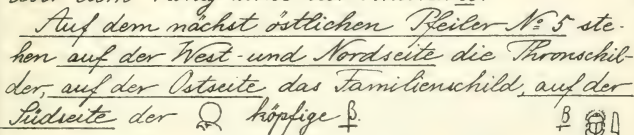 Auf dem nächst östlichen Pfeiler No 5 ste-
hen auf der West- und Nordseite die Thronschil-
der, auf der Ostseite das Familienschild, auf der
Südseite der köpfige